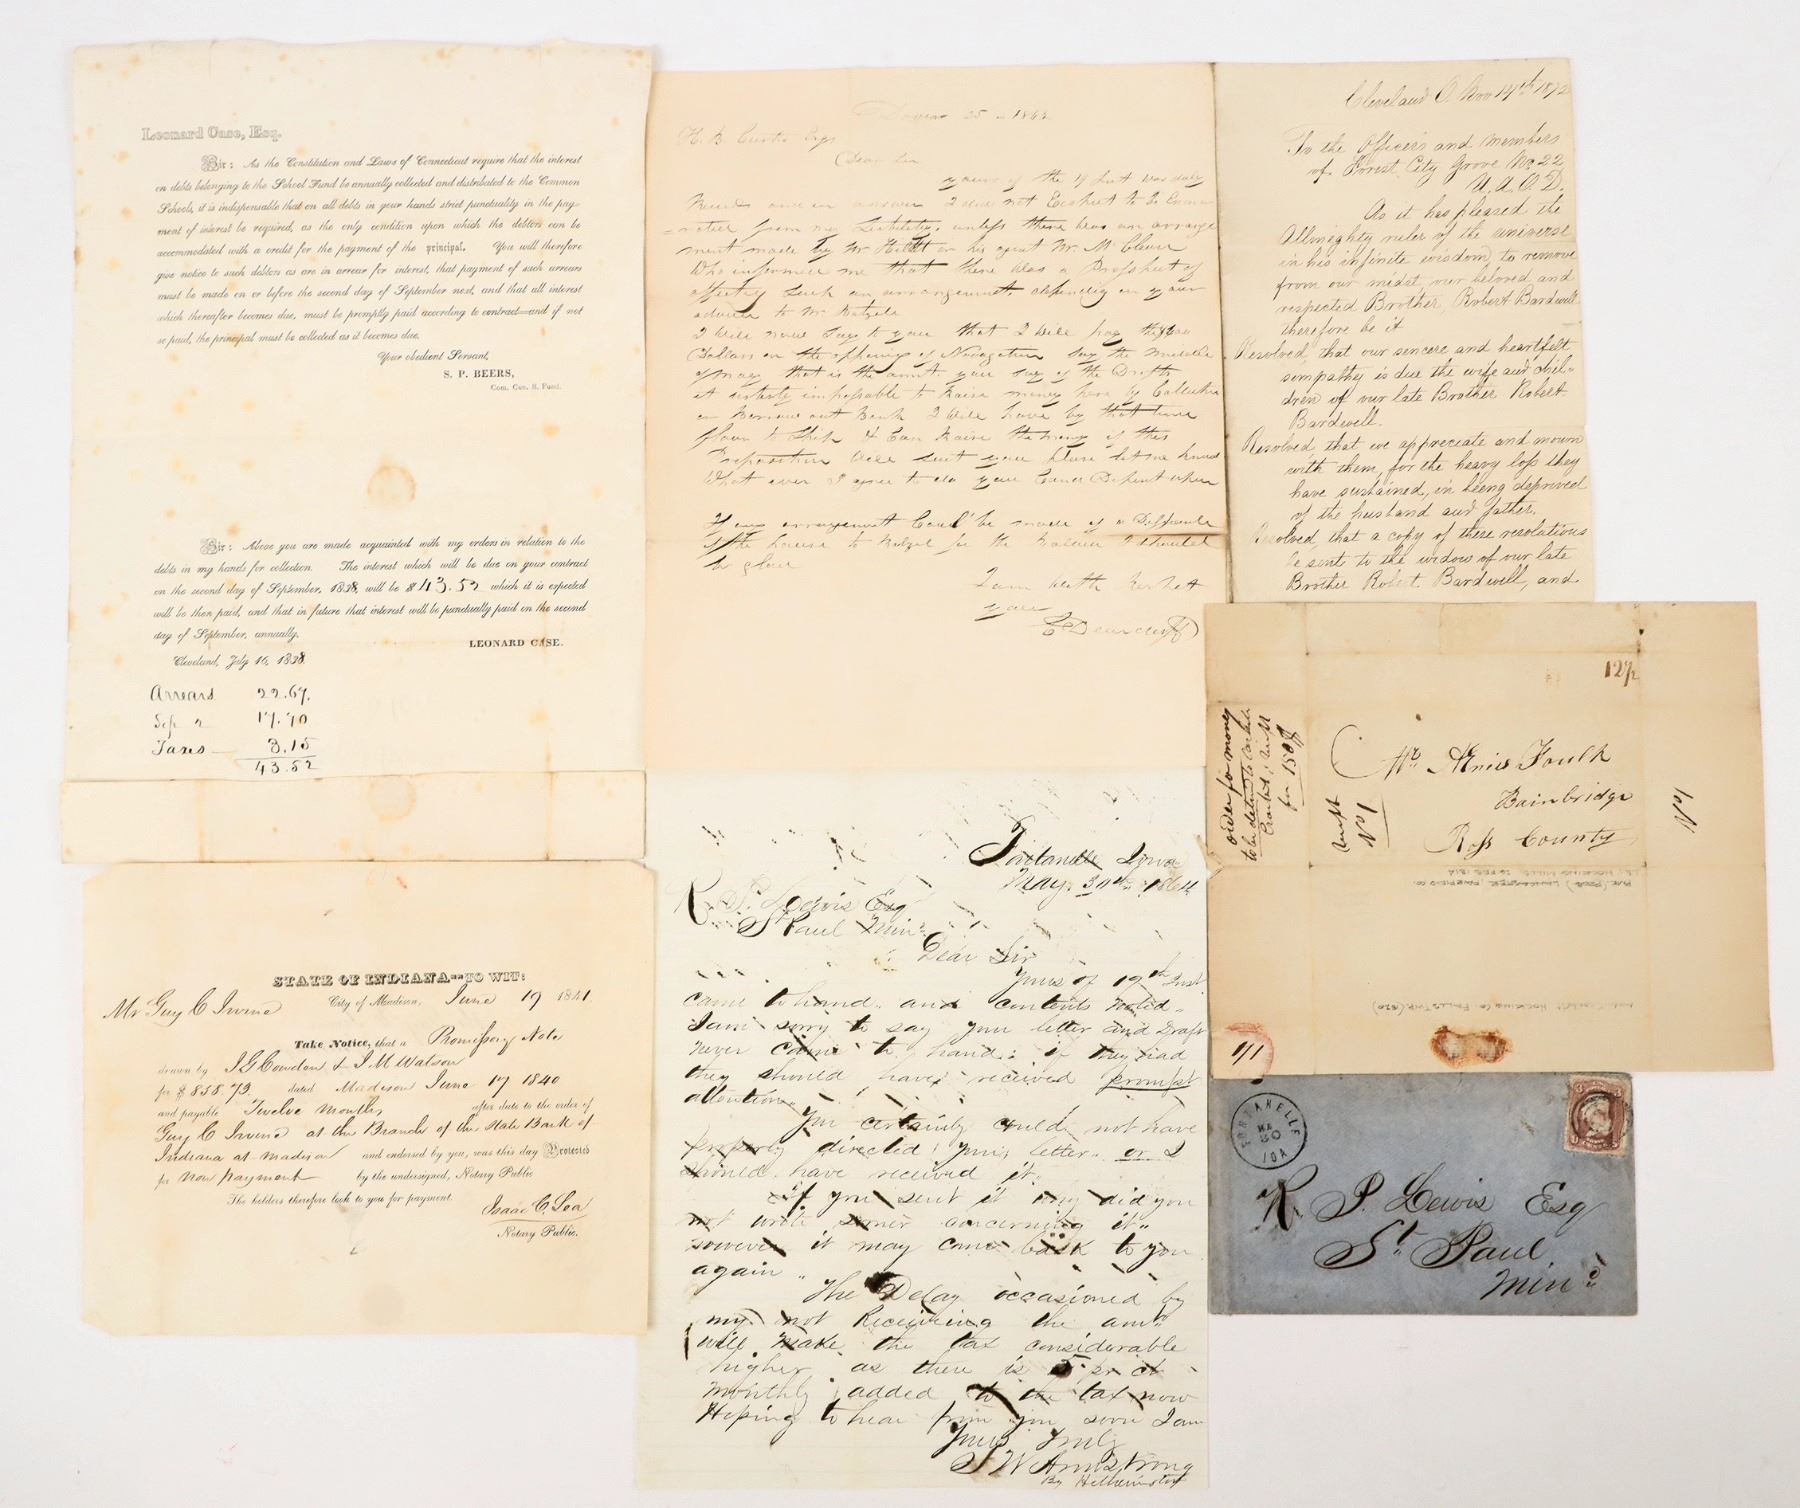 Leonard Case, Esq.
Sir: As the Constitution and Laws of Connecticut require that the interest
on debts belonging to the School Fund be annually collected and distributed to the Common
Schools, it is indispensable that on all debts in your hands strict punctuality in the pay-
ment of interest be required, as the only condition upon which the debtors can be
accommodated with a credit for the payment of the principal. You will therefore
give notice to such debtors as are in arrear for interest, that payment of such arrears
must be made on or before the second day of September next, and that all interest
which thereafter becomes due, must be promptly paid according to contract—and if not
so paid, the principal must be collected as it becomes due.
Your obedient Servant,
S. P. BEERS,
Com. Con. S. Fund.
Sir: Above you are made acquainted with my orders in relation to the
debts in my hands for collection. The interest which will be due on your contract
on the second day of September, 1838, will be $43.52 which it is expected
will be then paid, and that in future that interest will be punctually paid on the second
day of September, annually.
LEONARD CASE.
Cleveland, July 16, 1838.
Arrears 22.67.
Sep 2 17.70
Taxes 3.15
43.52
STATE OF INDIANA--TO WIT:
City of Madison, June 19 1841.
Mr Guy C Irvine
Take Notice, that a Promissory Note
drawn by J G Cowden & J. M Watson
for $ 858.73 dated Madison June 17 1840
and payable Twelve months after date to the order of
Guy C Irvine at the Branch of the State Bank of
Indiana at Madison and endorsed by you, was this day Protested
for non payment by the undersigned, Notary Public
The holders therefore look to you for payment.
Isaac C. Lea
Notary Public.
25 - 1842
H. B. Curtis Esqr
Dear Sir
yours of the 9 Inst was duly
and in answer I did not Expect to be
from my Liability, unless there was an arrange
ment made by Mr or his agent Mr McClure
Who informed me that there was a Prospect of
such an arrangement, depending on your
advice to Mr
I will now say to you that I will pay the
Dollars on the opening of Navigation say the middle
of May that is the amt. you say of the Drafts
it is impossible to raise money here by Collection
or Borrow out Bank I will have by that time
flour to Ship & Can raise the money if this
Proposition will suit you please let me know
What ever I agree to do you Can Depend upon
If any arrangement Could be made of a
of the house to for the Balance I should
be glad
I am with respect
your
Cleveland O. Nov 14th 1872
To the Officers and members
of Forest City Grove No. 22
U. A. O. D.
As it has pleased the
Allmighty ruler of the universe
in his infinite wisdom, to remove
from our midst, our beloved and
respected Brother, Robert Bardwell
therefore be it
Resolved, that our sincere and heartfelt
sympathy is due the wife and chil-
dren of our late Brother Robert
Bardwell.
Resolved, that we appreciate and mourn
with them, for the heavy loss they
have sustained, in being deprived
of the husband and father.
Resolved, that a copy of these resolutions
be sent to the widow of our late
Brother Robert Bardwell, and
12½
Mr Faulk
Bainbridge
Ross County
order for money
No 1
No 1
Iowa
May 30th 1864
R. P. Lewis Esq
St Paul Min
Dear Sir
Yours of 19th Inst
came to hand and contents Noted.
I am sorry to say your letter and Draft
never came to hand: if they had
they should have received prompt
attention.
You certainly could not have
properly directed your letter or I
should have received it.
If you sent it why did you
not write sooner concerning it.
however it may come back to you
again.
The Delay occasioned by
my not Receiving the amt
will make the tax considerable
higher as there is 5 pr ct
Monthly added to the tax now
Hoping to hear from you soon I am
Yours Truly
S W Armstrong
By
FONTANELLE
MA
30
IOA
3 3
R. P. Lewis Esq
St. Paul
Min